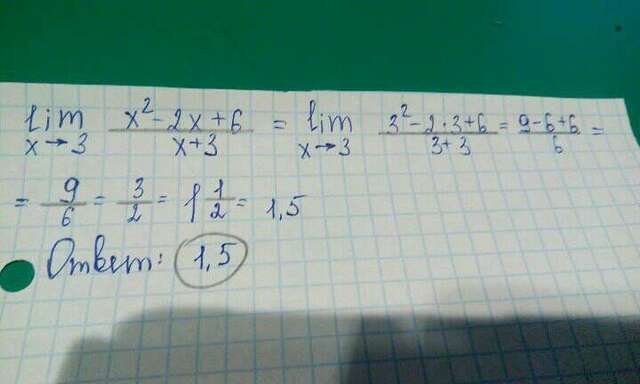 lim x→3 (x² - 2x + 6)/(x + 3) = lim x→3 (3² - 2·3 + 6)/(3 + 3) = (9 - 6 + 6)/6 =
= 9/6 = 3/2 = 1 1/2 = 1,5
Ответ: 1,5